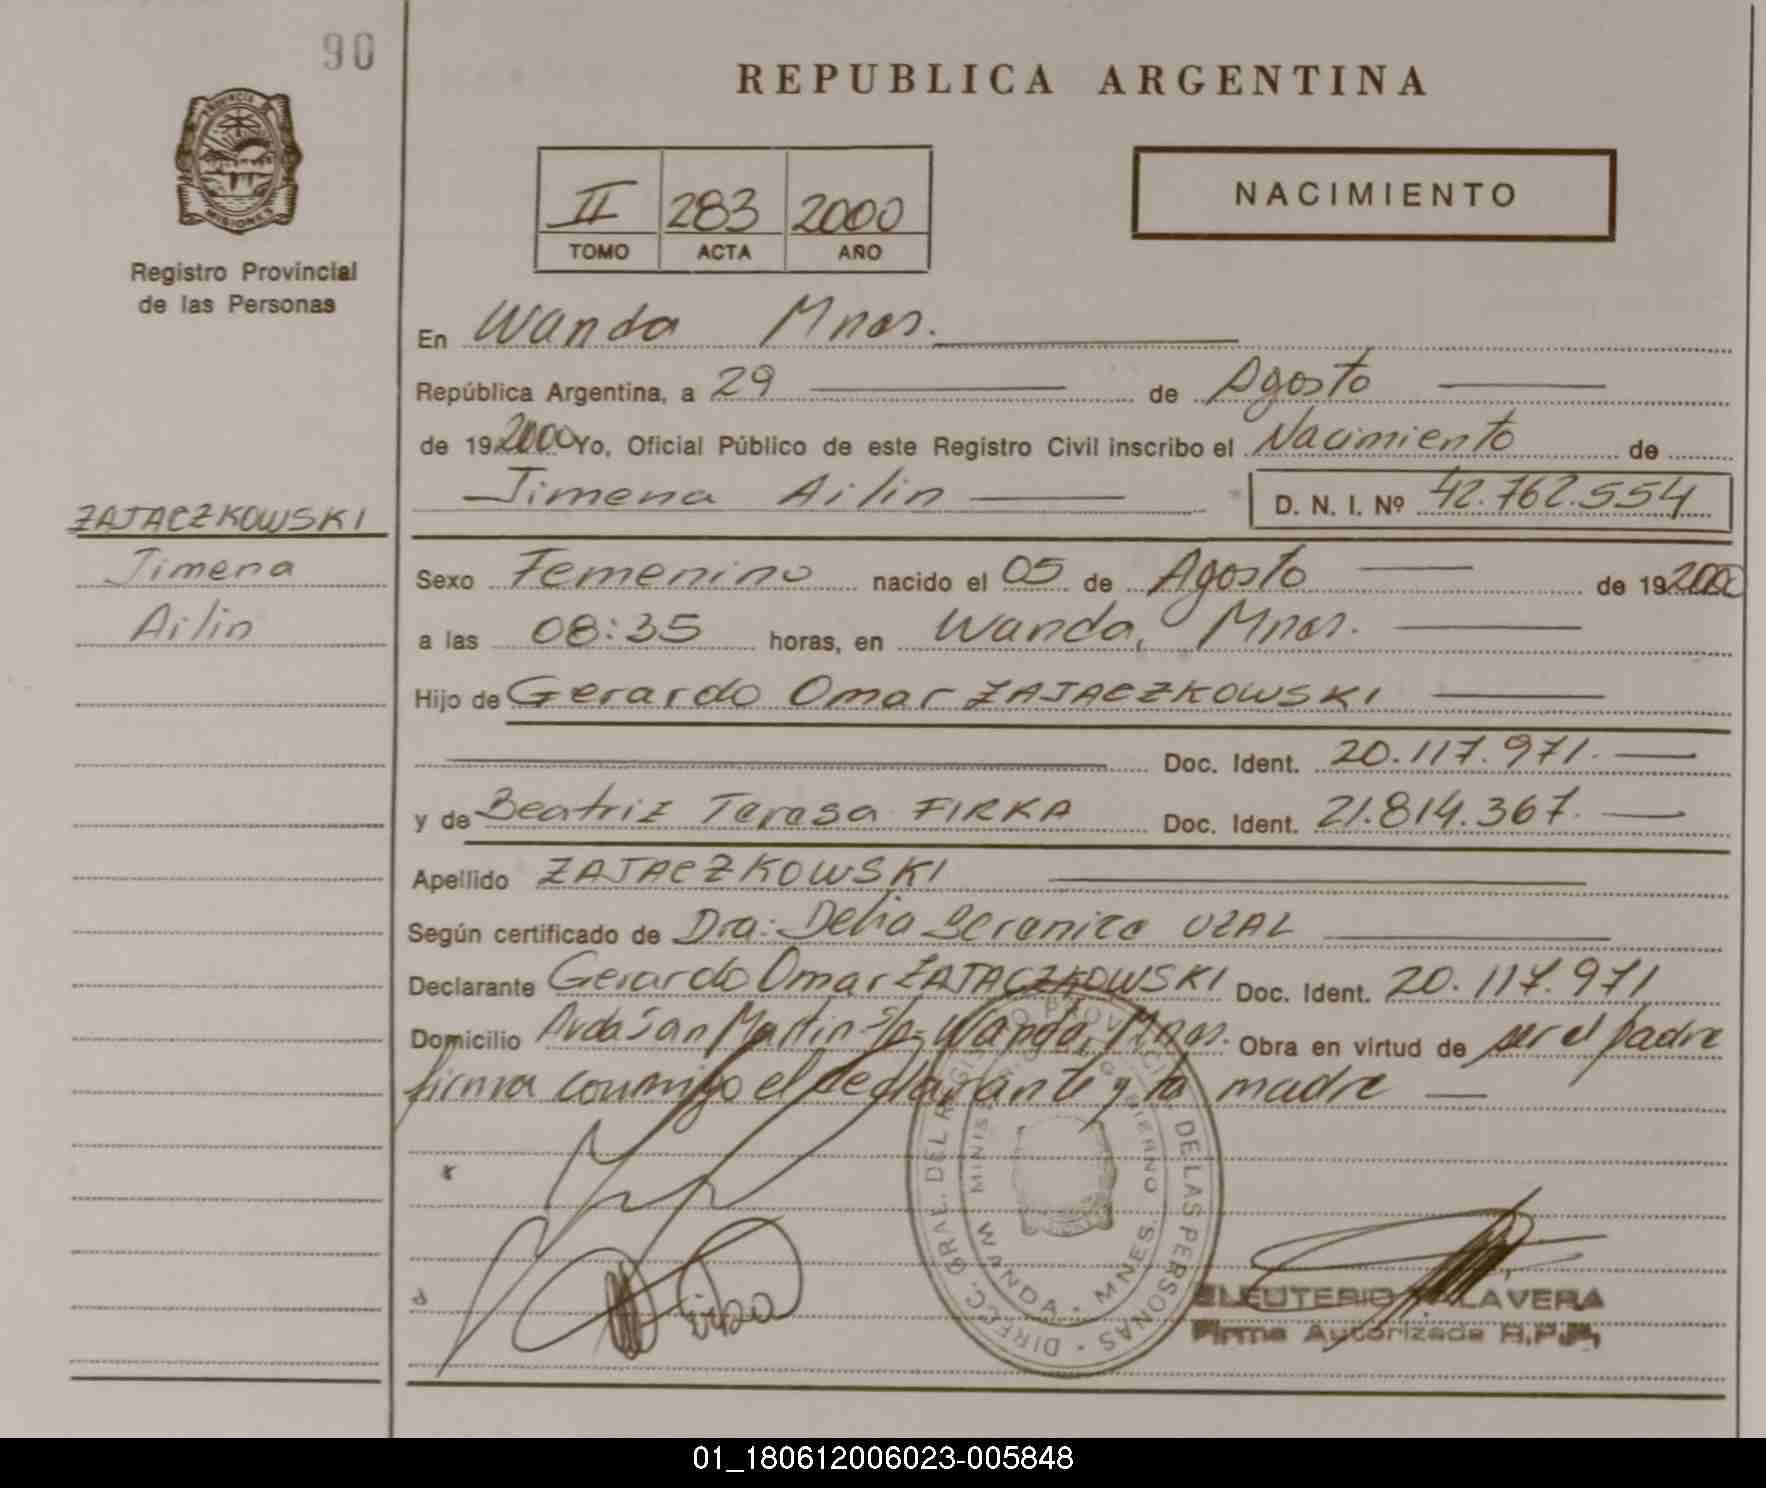 90
REPUBLICA ARGENTINA
PROVINCIA DE
MISIONES
Registro Provincial
de las Personas
II 283 2000
TOMO ACTA AÑO
NACIMIENTO
En Wanda Mnes.
República Argentina, a 29 de Agosto
de 19 2000 Yo, Oficial Público de este Registro Civil inscribo el Nacimiento de
Jimena Ailin D. N. I. Nº 42.762.554
ZAJACZKOWSKI
Jimena
Ailin
Sexo Femenino nacido el 05 de Agosto de 19 2000
a las 08:35 horas, en Wanda, Mnes.
Hijo de Gerardo Omar ZAJACZKOWSKI
Doc. Ident. 20.117.971.
y de Beatriz Teresa FIRKA Doc. Ident. 21.814.367.
Apellido ZAJACZKOWSKI
Según certificado de Dra: Delia UZAL
Declarante Gerardo Omar ZAJACZKOWSKI Doc. Ident. 20.117.971
Domicilio Avda San Martin S/n- Wanda, Mnes. Obra en virtud de ser el padre
firma conmigo el declarante y la madre
DIRECC. GRAL. DEL REGISTRO PROVINCIAL DE LAS PERSONAS
WANDA - MNES.
ELEUTERIO TALAVERA
Firma Autorizada R.P.P.
01_180612006023-005848